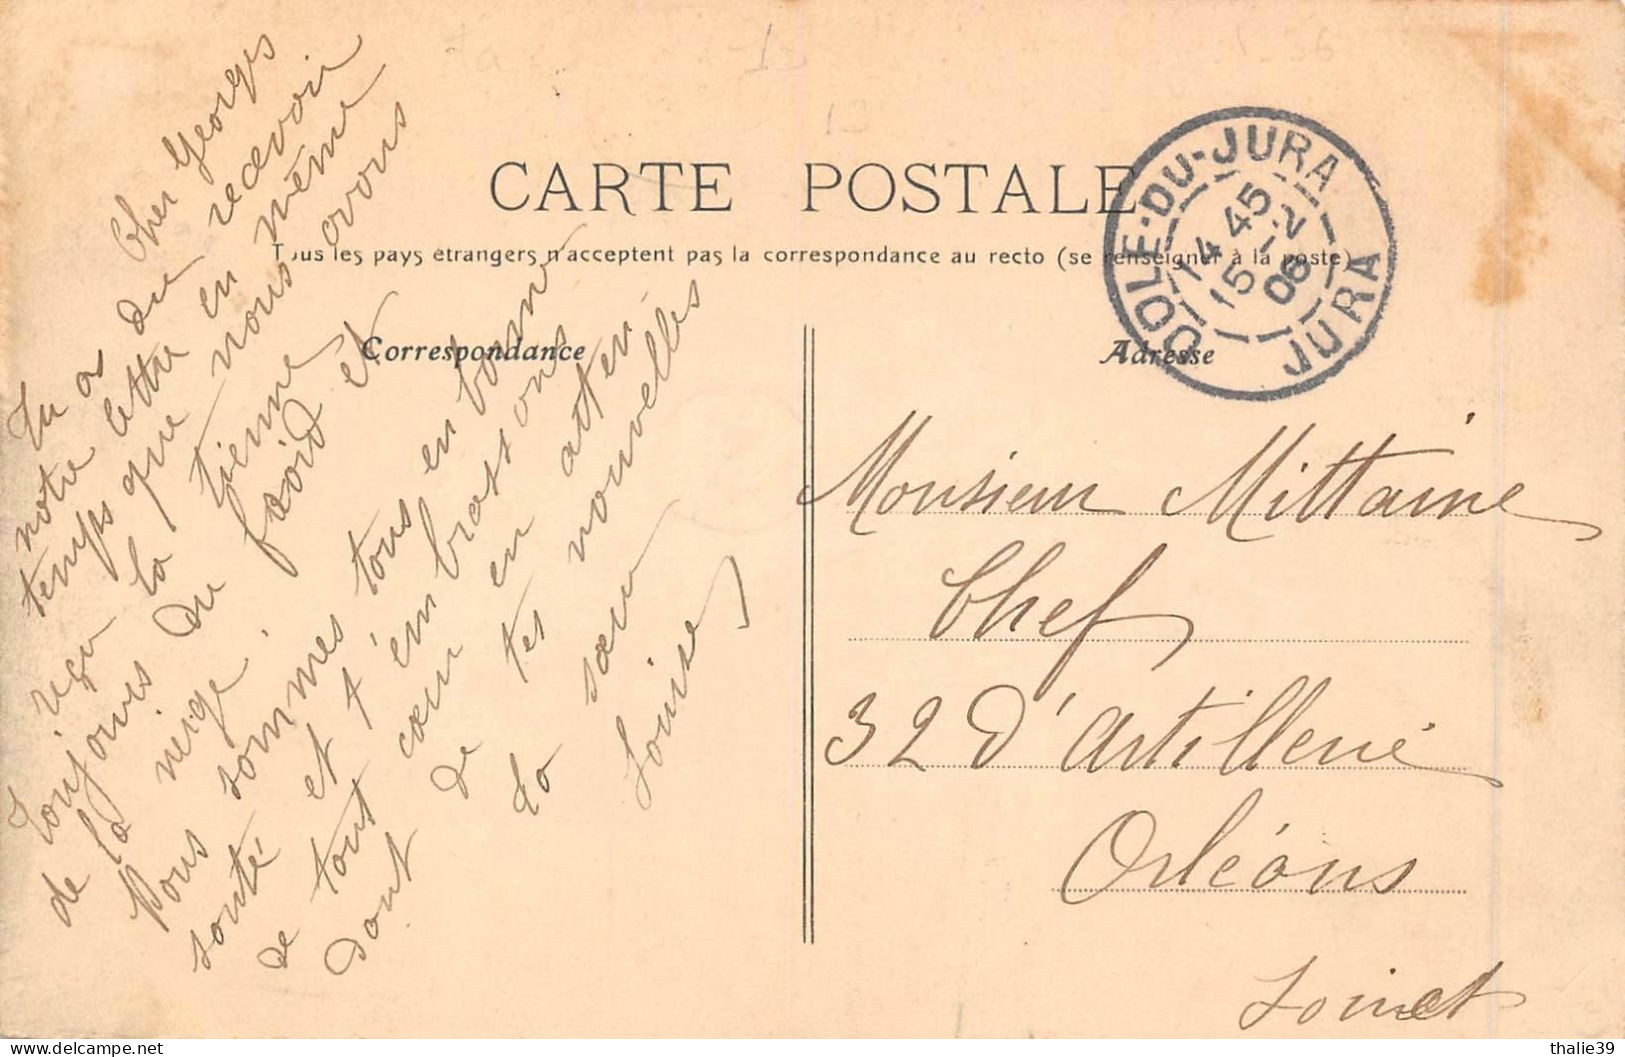 CARTE POSTALE
Tous les pays étrangers n'acceptent pas la correspondance au recto (se renseigner à la poste)
Correspondance
Adresse
DOLE-DU-JURA
14 45
15 -2
06
JURA
Cher Georges
Tu a du recevoir
notre lettre en même
temps que nous avons
reçu la tienne
Toujours du froid et
de la neige.
Nous sommes tous en bonne
santé et t'embrassons
de tout cœur en atten
dant de tes nouvelles
ta sœur
Louise
Monsieur Mittaine
Chef
32 d'Artillerie
Orléans
Loiret
delcampe.net
thalie39